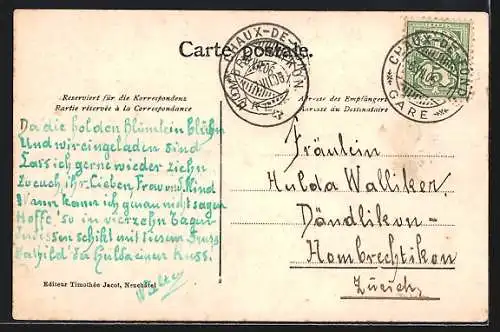 Carte postale.
CHAUX-DE-FONDS
CHAUX-DE-FONDS
GARE
Reserviert für die Korrespondenz
Partie réservée à la Correspondance
Adresse des Empfängers
Adresse du Destinataire
Da die holden Blümlein blühn
Und wir eingeladen sind
Lass ich gerne wieder ziehn
Zu euch ihr Lieben, Frau und Kind
Wann kann ich genau nicht sagen
Hoffe 's so in vierzehn Tagen
Indessen schikt mit diesem Gruss
Mathild der Hulda einen Kuss.
Fräulein
Hulda Walliker
Dändlikon-
Hombrechtikon
Zürich
Editeur Timothée Jacot, Neuchâtel